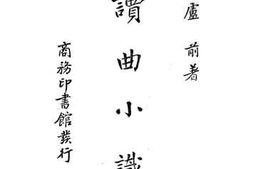 盧前著
讀曲小識
商務印書館發行